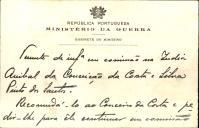 REPÚBLICA PORTUGUESA
MINISTÉRIO DA GUERRA
GABINETE DO MINISTRO
Tenente de inf.ª em comissão na India
Anibal da Conceição da Costa e Silva
Pinto dos Santos.
Recomendá-lo ao Conceiro da Costa e pe-
dir-lhe para ele continuar em comissão